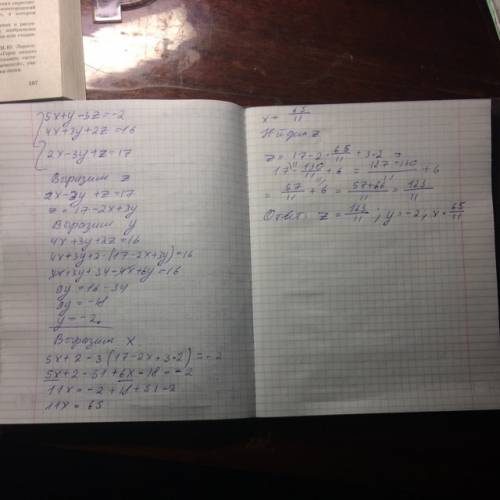 5x+y-3z=-2
4x+3y+2z=16
2x-3y+z=17
Выразим z
2x-3y+z=17
z=17-2x+3y
Выразим y
4x+3y+2z=16
4x+3y+2·(17-2x+3y)=16
4x+3y+34-4x+6y=16
9y=16-34
9y=-18
y=-2.
Выразим x
5x+2-3(17-2x+3·2)=-2
5x+2-51+6x-18=-2
11x=-2+18+51-2
11x=65
x=65/11
Найдём z
z=17-2·65/11+3·2=
17-130/11+6=187-130/11+6
=57/11+6=57+66/11=123/11
Ответ: z=123/11; y=-2, x=65/11
107